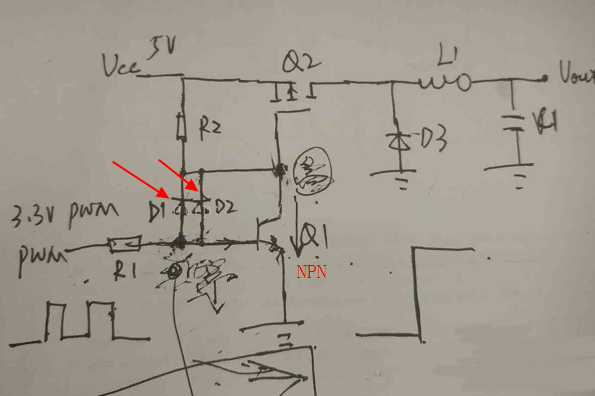 Vcc 5V
Q2
L1
Vout
R2
D3
3.3V PWM
D1
D2
PWM
R1
Q1
NPN